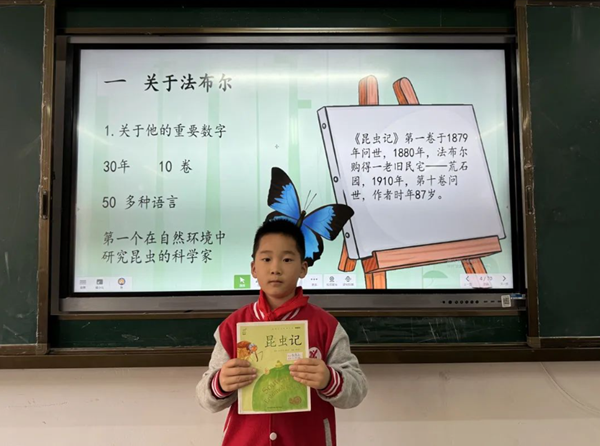 一 关于法布尔
1.关于他的重要数字
30年 10 卷
50 多种语言
第一个在自然环境中
研究昆虫的科学家
《昆虫记》第一卷于1879
年问世，1880年，法布尔
购得一老旧民宅——荒石
园，1910年，第十卷问
世，作者时年87岁。
昆虫记